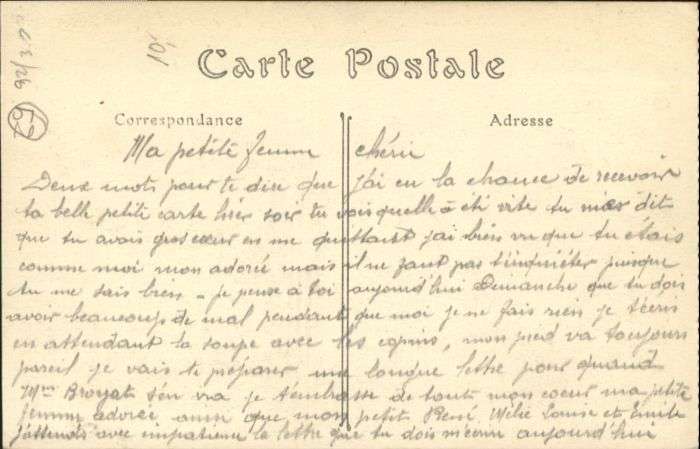 101
67
Carte Postale
Correspondance
Adresse
Ma petite femme chérie
Deux mots pour te dire que j'ai eu la chance de recevoir
ta belle petite carte hier soir tu vois quelle à été vite tu m'as dit
que tu avais gros cœur en me quittant j'ai bien vu que tu étais
comme moi mon adorée mais il ne faut pas t'inquiéter puisque
tu me sais bien - je pense à toi aujourd'hui Dimanche que tu dois
avoir beaucoup de mal pendant que moi je ne fais rien je t'écris
en attendant la soupe avec les copins, mon pied va toujours
pareil je vais te préparer une longue lettre pour quand
Mme Broyat s'en va je t'embrasse de tout mon coeur ma petite
femme adorée ainsi que mon petit René Mélie Louise et Emile
J'attends avec impatience la lettre que tu dois m'écrire aujourd'hui